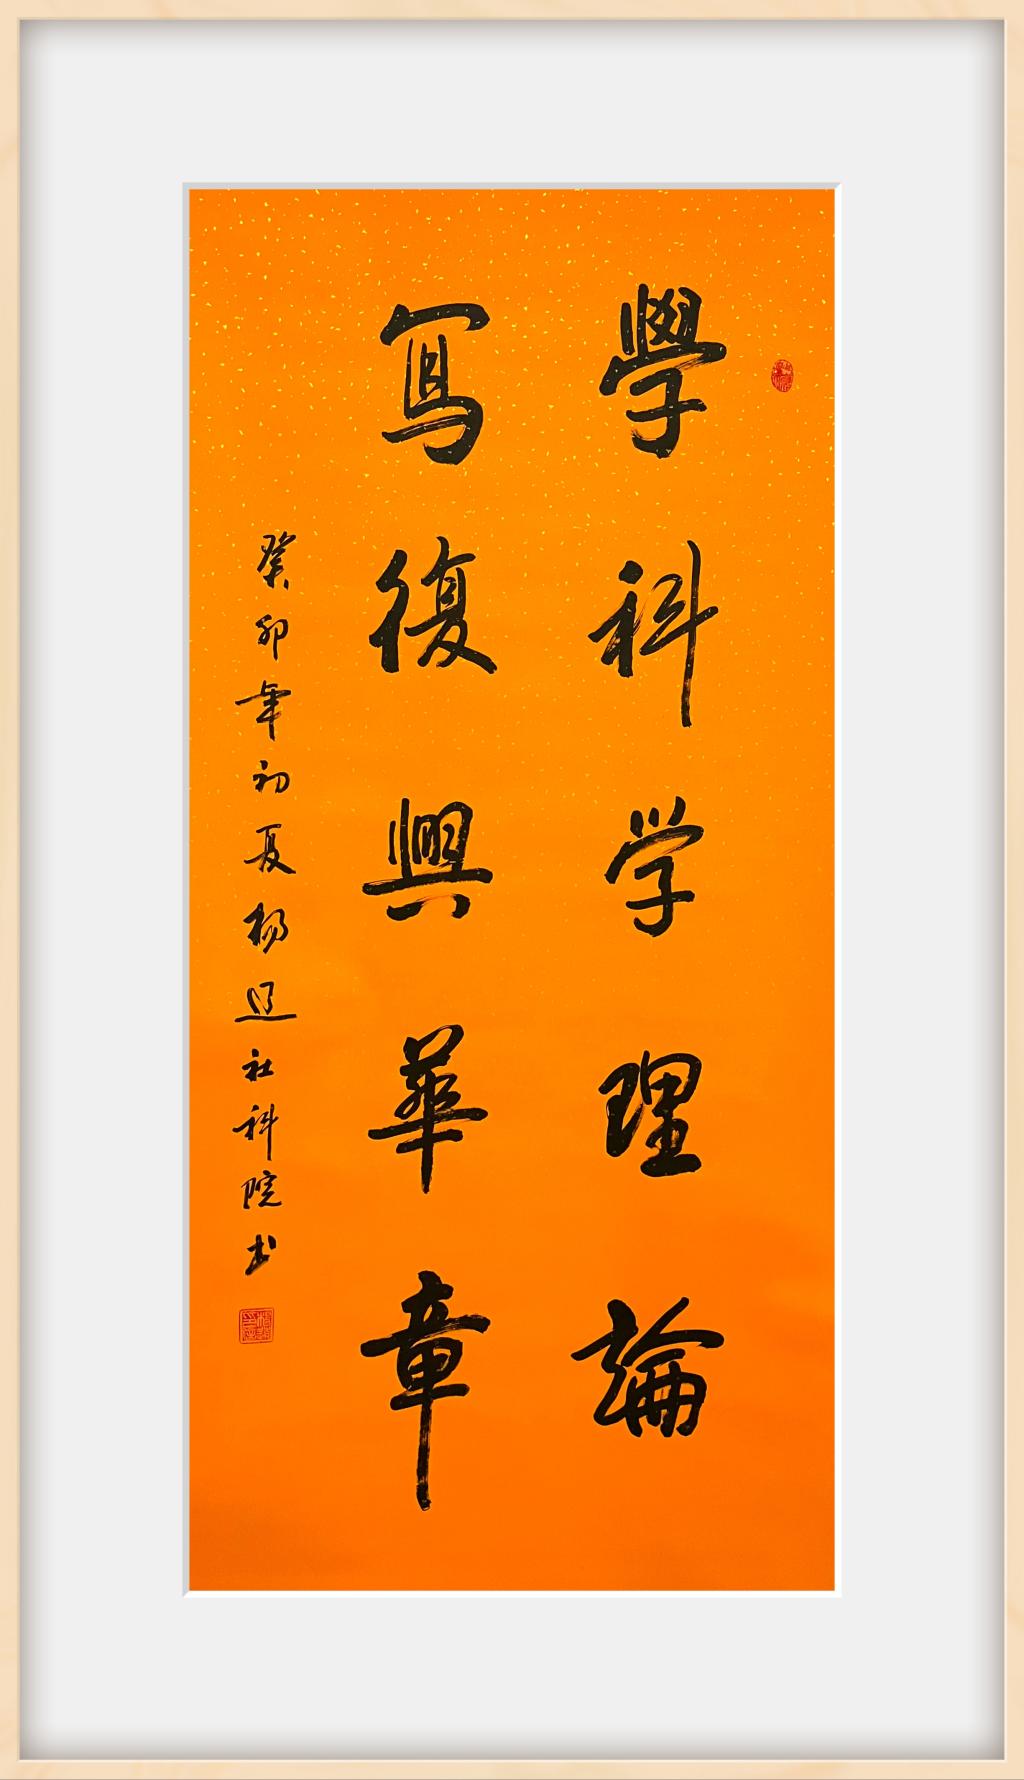 學科学理論
寫復興華章
癸卯年初夏杨
社科院书